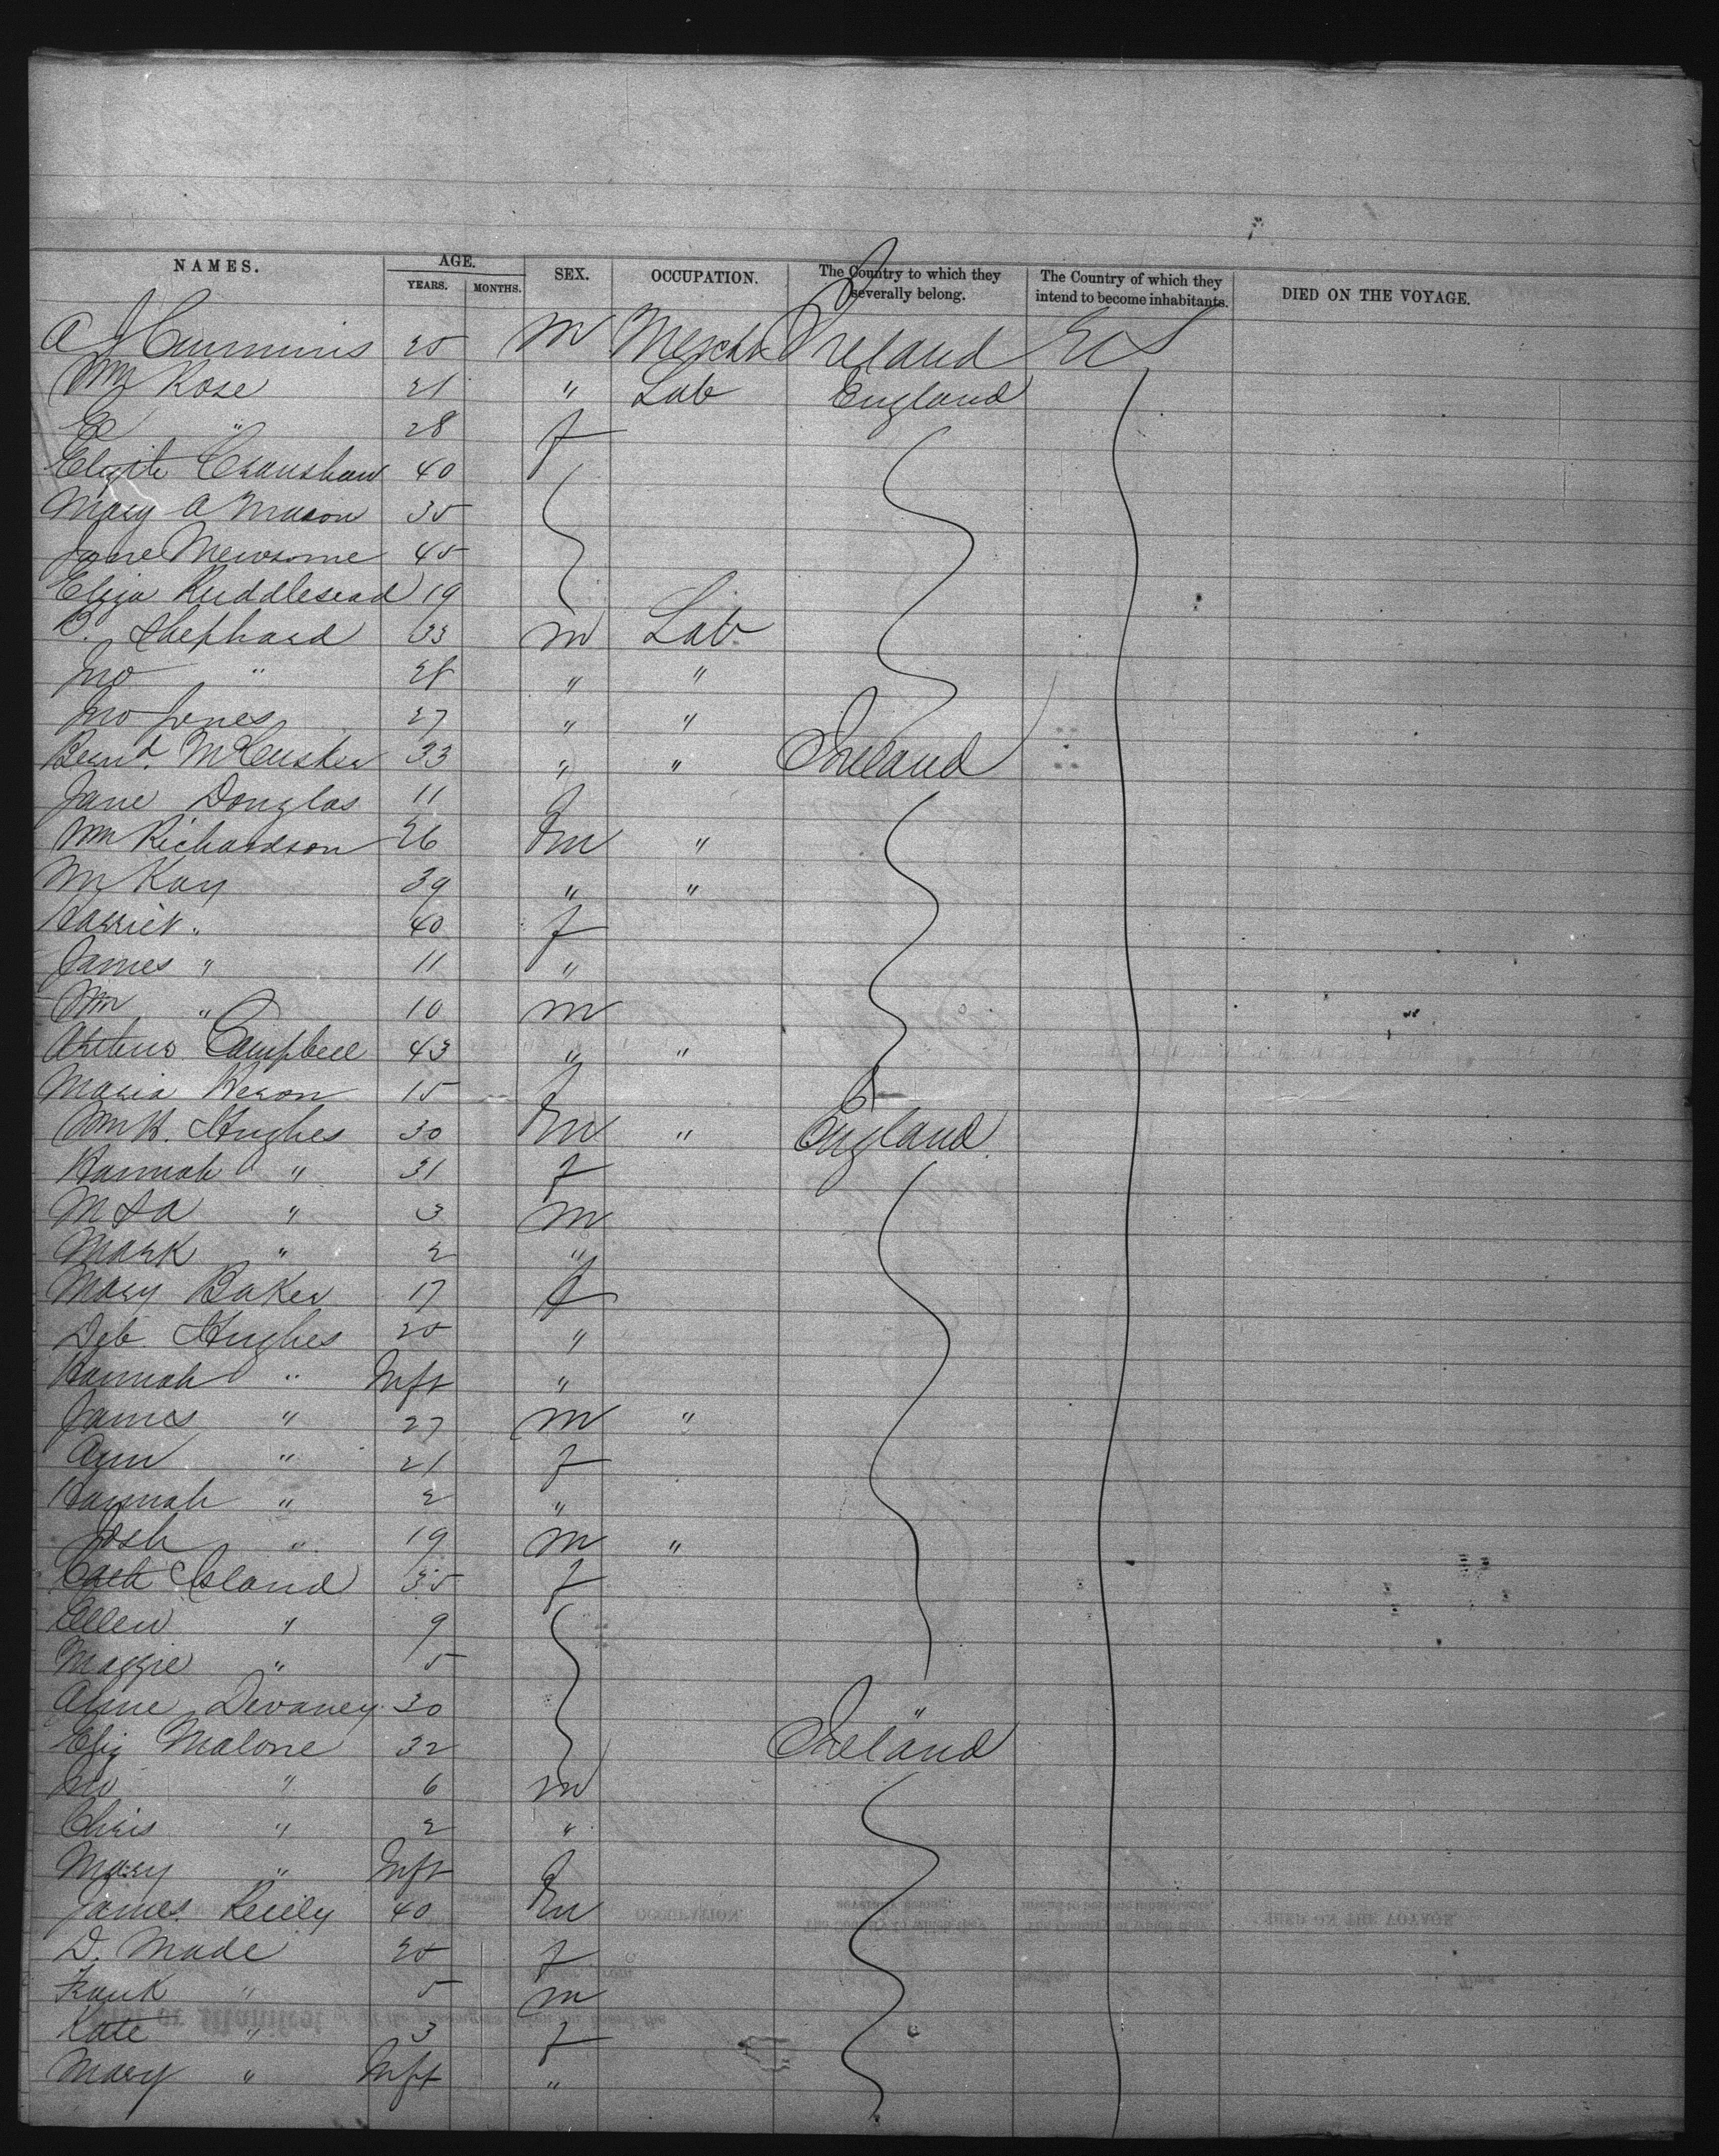 NAMES. AGE. SEX. OCCUPATION. The Country to which they severally belong. The Country of which they intend to become inhabitants. DIED ON THE VOYAGE.
YEARS. MONTHS.
A J Cummins 20 M Mercht Ireland U S
Wm Rose 21 " Lab England
E " 28 f
Elizth Cranshaw 40
Mary A Mason 35
Jane Newsome 45
Eliza 19
C. Shephard 33 M Lab.
Jno " 28 " "
Jno Jones 27 " "
Bernd. McCusker 33 " " Ireland
Jane Douglas 11 f
Wm Richardson 26 M "
Wm Kay 39 " "
Harriet " 40 f
James " 11 "
Wm " 10 M
Campbell 43 " "
Maria 15 f
Wm H. Hughes 30 M " England
Hannah " 31 f
" 3 M
Mark " 2 "
Mary Baker 17 f
Deb. Hughes 20 "
Hannah " Inft "
James " 27 M "
Ann " 21 f
Hannah " 2 "
Josh " 19 M "
Cath Island 35 f
Ellen " 9
Maggie " 5
Anne Devaney 30 "
Eliz Malone 32 Ireland
Jno " 6 M
Chris " 2 "
Mary " Inft f
James Reilly 40 M
D. Made 20 f
Frank " 5 M
Kate " 3 f
Mary " Inft "